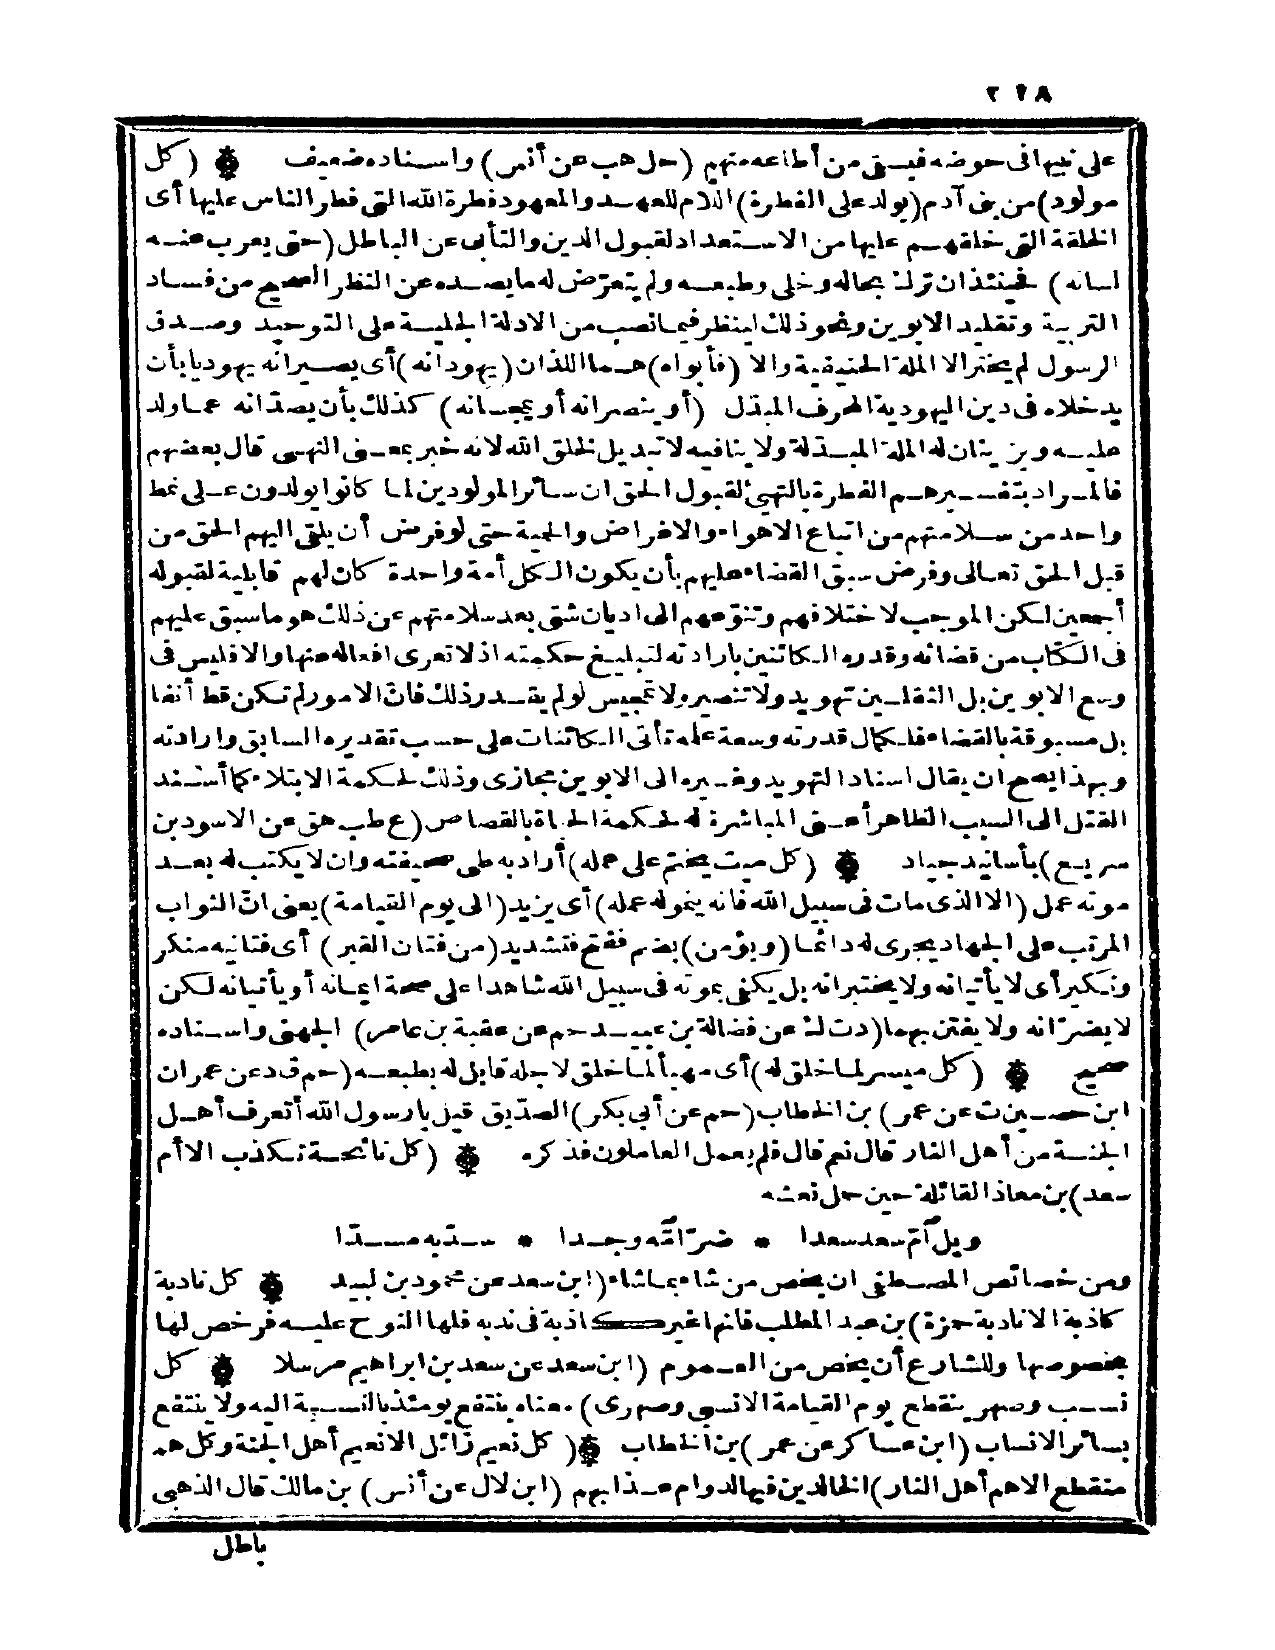 ٢١٨
على نبيها فى حوضه فيسقى من أطاعه منهم (حل هب عن أنس) واسناده ضعيف ۞ (كل
مولود) من بنى آدم (يولد على الفطرة) اللام للعهد والمعهود فطرة الله التى فطر الناس عليها أى
الخلقة التى خلقهم عليها من الاستعداد لقبول الدين والتأبى عن الباطل (حتى يعرب عنه
لسانه) فحينئذ ان ترك بحاله وخلى وطبعه ولم يتعرّض له ما يصده عن النظر الصحيح من فساد
التربية وتقليد الابوين ونحو ذلك لينظر فيما نصب من الادلة الجلية على التوحيد وصدق
الرسول لم يختر الا الملة الحنيفية والا (فأبواه) هما اللذان (يهودانه) أى يصيرانه يهوديا بأن
يدخلاه فى دين اليهودية المحرف المبدّل (أو ينصرانه أو يمجسانه) كذلك بأن يصدّانه عما ولد
عليه ويزينان له الملة المبدّلة ولا ينافيه لا تبديل لخلق الله لانه خبر بمعنى النهى قال بعضهم
فالمراد بتفسيرهم الفطرة بالتهيئ لقبول الحق ان سائر المولودين لما كانوا يولدون على نمط
واحد من سلامتهم من اتباع الاهواء والاغراض والحمية حتى لو فرض أن يلقى اليهم الحق من
قبل الحق تعالى وفرض سبق القضاء عليهم بأن يكون الكل أمة واحدة كان لهم قابلية لقبوله
أجمعين لكن الموجب لاختلافهم وتنوّعهم الى اديان شتى بعد سلامتهم عن ذلك هو ما سبق عليهم
فى الكتاب من قضائه وقدره الكائنين بارادته لتبليغ حكمته اذ لا تعرى افعاله عنها والا فليس فى
وسع الابوين بل الثقلين تهويد ولا تنصير ولا تمجيس لو لم يقدر ذلك فانّ الامور لم تكن قط أنفا
بل مسبوقة بالقضاء فلكمال قدرته وسعة علمه تأتى الكائنات على حسب تقديره السابق وارادته
وبهذا يصح ان يقال اسناد التهويد وغيره الى الابوين مجازى وذلك لحكمة الابتلاء كما أسند
القتل الى السبب الظاهر أعنى المباشرة له لحكمة الحياة بالقصاص (ع طب هق عن الاسود بن
سريع) بأسانيد جياد ۞ (كل ميت يختم على عمله) أراد به طى صحيفته وان لا يكتب له بعد
موته عمل (الا الذى مات فى سبيل الله فانه ينمو له عمله) أى يزيد (الى يوم القيامة) يعنى انّ الثواب
المرتب على الجهاد يجرى له دائما (ويؤمن) بضم ففتح فتشديد (من فتان القبر) أى فتانيه منكر
ونكير أى لا يأتيانه ولا يختبرانه بل يكفى بموته فى سبيل الله شاهدا على صحة ايمانه أو يأتيانه لكن
لا يضرّانه ولا يفتن بهما (د ت ك عن فضالة بن عبيد حم عن عقبة بن عامر) الجهنى واسناده
صحيح ۞ (كل ميسر لما خلق له) أى مهيأ لما خلق لاجله قابل له بطبعه (حم ق د عن عمران
ابن حصين ت عن عمر) بن الخطاب (حم عن أبى بكر) الصدّيق قيل يا رسول الله أتعرف أهل
الجنة من أهل النار قال نعم قال فلم يعمل العاملون فذكره ۞ (كل نائحة تكذب الا أم
سعد) بن معاذ القائلة حين حمل نعشه
ويل أمّ سعد سعدا * ضرّامة وجدا * سدّبه مسدّا
ومن خصائص المصطفى ان يخص من شاء بما شاء (ابن سعد عن محمود بن لبيد ۞ كل نادبة
كاذبة الا نادبة حمزة) بن عبد المطلب فانها غير كاذبة فى ندبه فلها النوح عليه فرخص لها
بخصوصها وللشارع أن يخص من العموم (ابن سعد عن سعد بن ابراهيم مرسلا ۞ كل
نسب وصهر ينقطع يوم القيامة الا نسبى وصهرى) معناه ينتفع يومئذ بالنسبة اليه ولا ينتفع
بسائر الانساب (ابن عساكر عن عمر) بن الخطاب ۞ (كل نعيم زائل الا نعيم أهل الجنة وكل هم
منقطع الا هم أهل النار) الخالدين فيها لدوام عذابهم (ابن لال عن أنس) بن مالك قال الذهبى
باطل